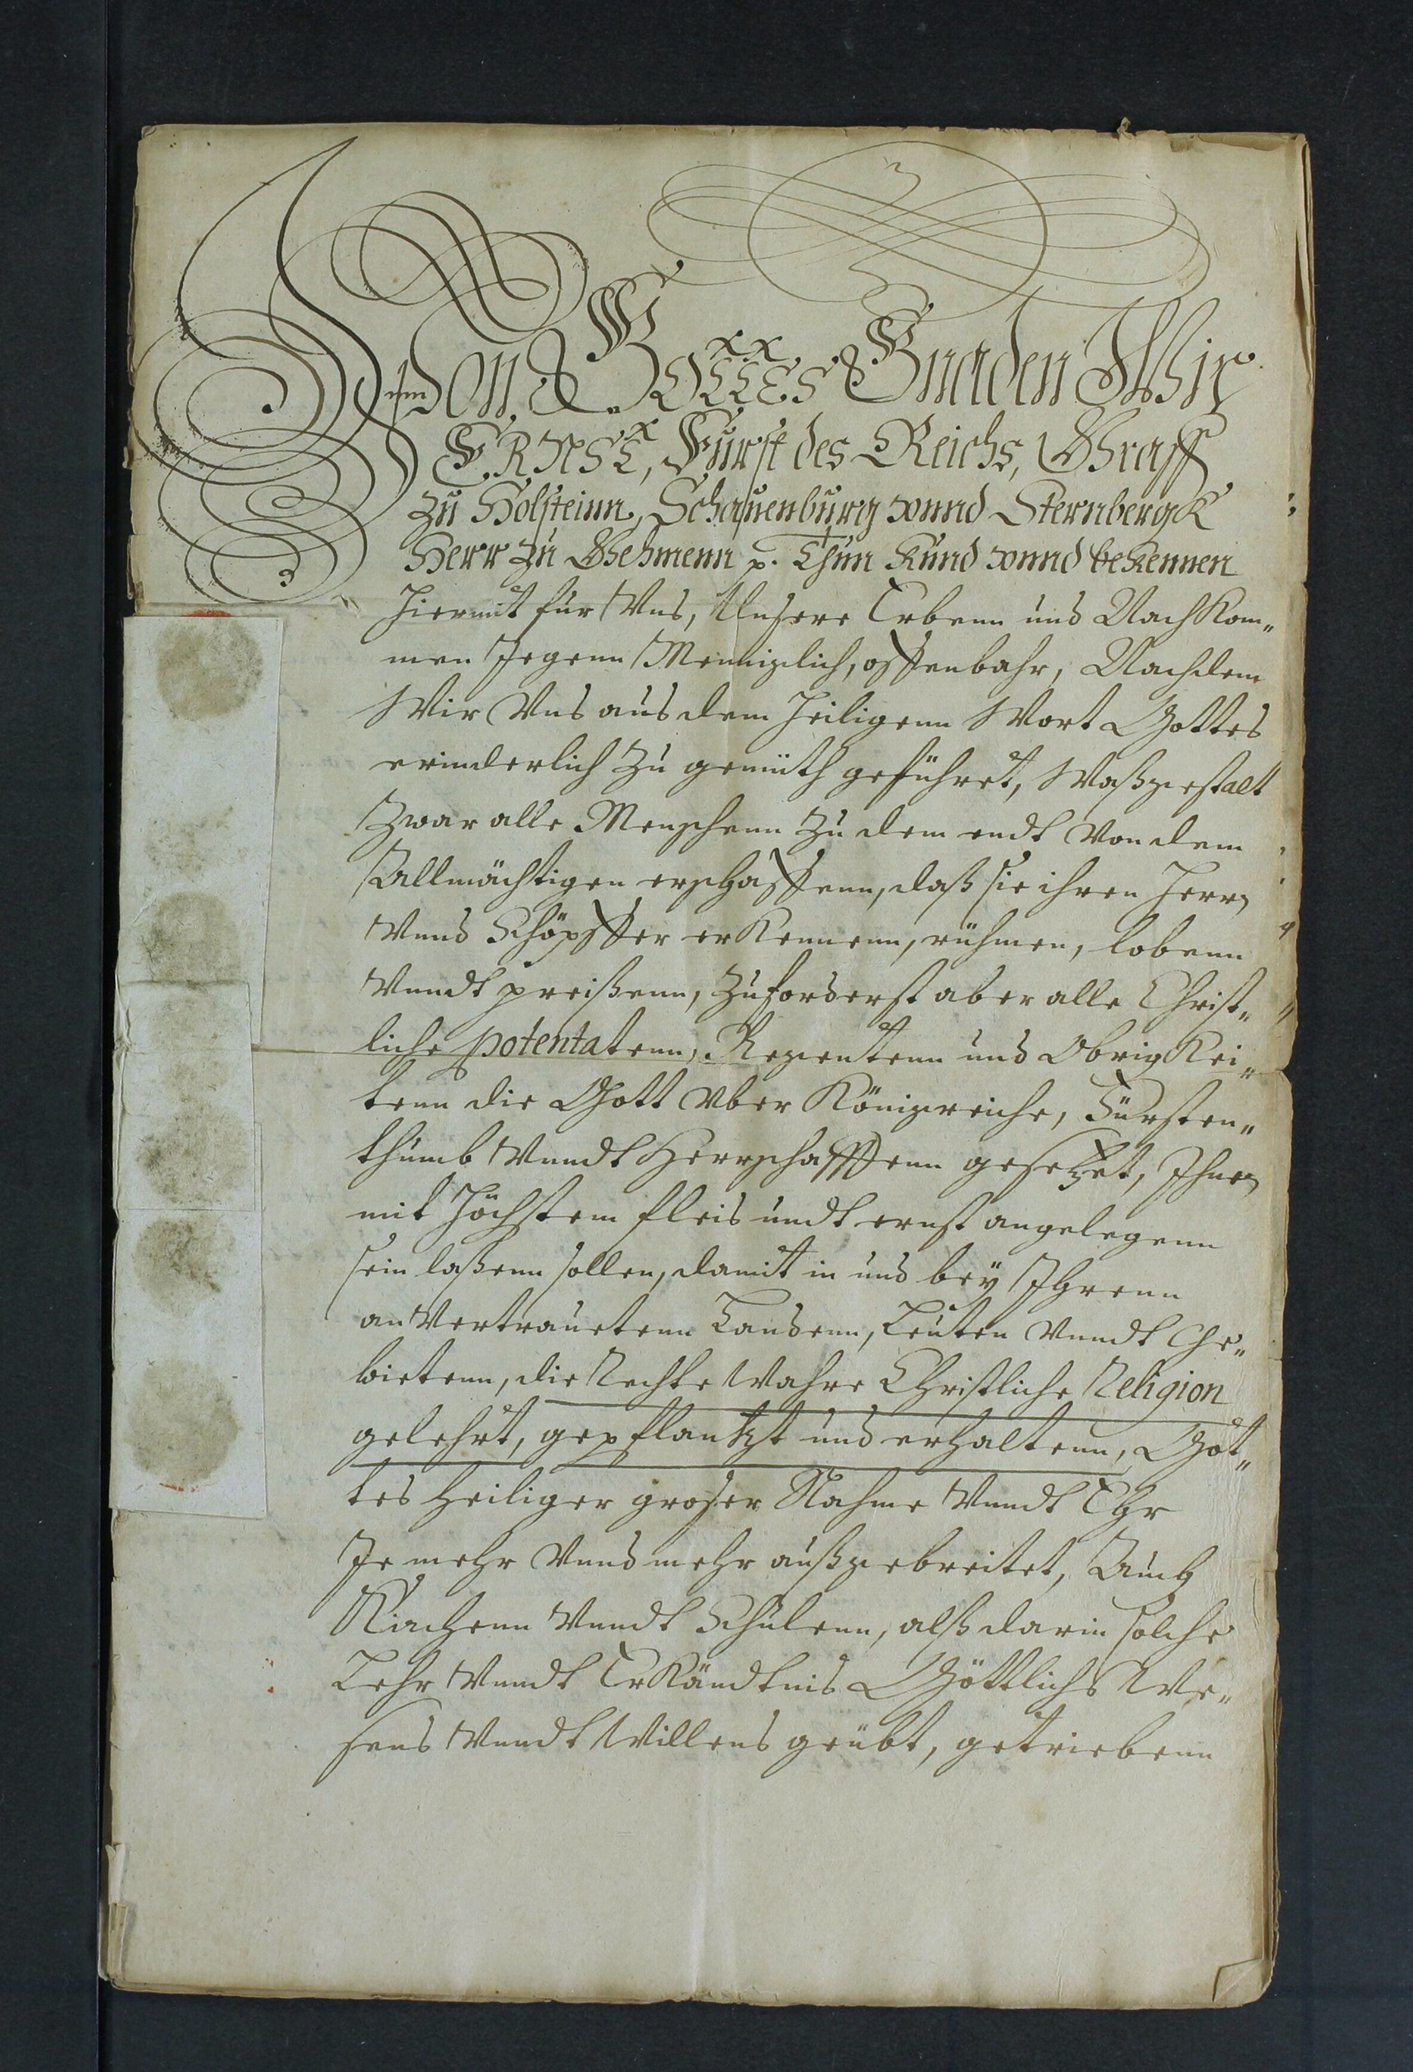 Von GOTTES Gnaden Wir
ERNST, Fürst des Reichs, Graff
zu Holsteinn, Schauenburg vnnd Sternbergk
Herr zu Gehmenn p. Thun kund vnnd bekennen
hiermit für Vns, Unsere Erbenn und Nachkom„
men Jegenn Menniglich, offenbahr, Nachdem
Wir Vns aus dem heiligenn Wort Gottes
erinderlich zu gemüth geführet, Waßgestalt
Zwar alle Menschenn zu dem endt von dem
Allmächtigen erschaffenn, daß sie ihren Herrn
Vnnd Schöpffer erkennenn, rühmen, lobenn
Vnndt preißenn, zuforderst aber alle Christ„
liche potentatenn, Regentenn und Obrigkei„
tenn die Gott vber Königreiche, Fürsten„
thumb Vnndt Herrschafftenn gesetzet, Ihnen
mit höchstem fleis undt ernst angelegenn
sein laßenn sollen, damit in und bey Ihrenn
anvertrauetenn Landenn, Leuten Vnndt Ge„
bietenn, die Rechte Wahre Christliche Religion
gelehrt, gepflantzt und erhaltenn, Got„
tes Heiliger großer Nahme Vnndt Ehr
Je mehr Vnnd mehr außgebreitet, Auch
Kirchenn Vnndt Schulenn, alß darin solche
Lehr Vnndt Erkändtnis Göttlichs We„
sens Vnndt Willens geübt, getriebenn